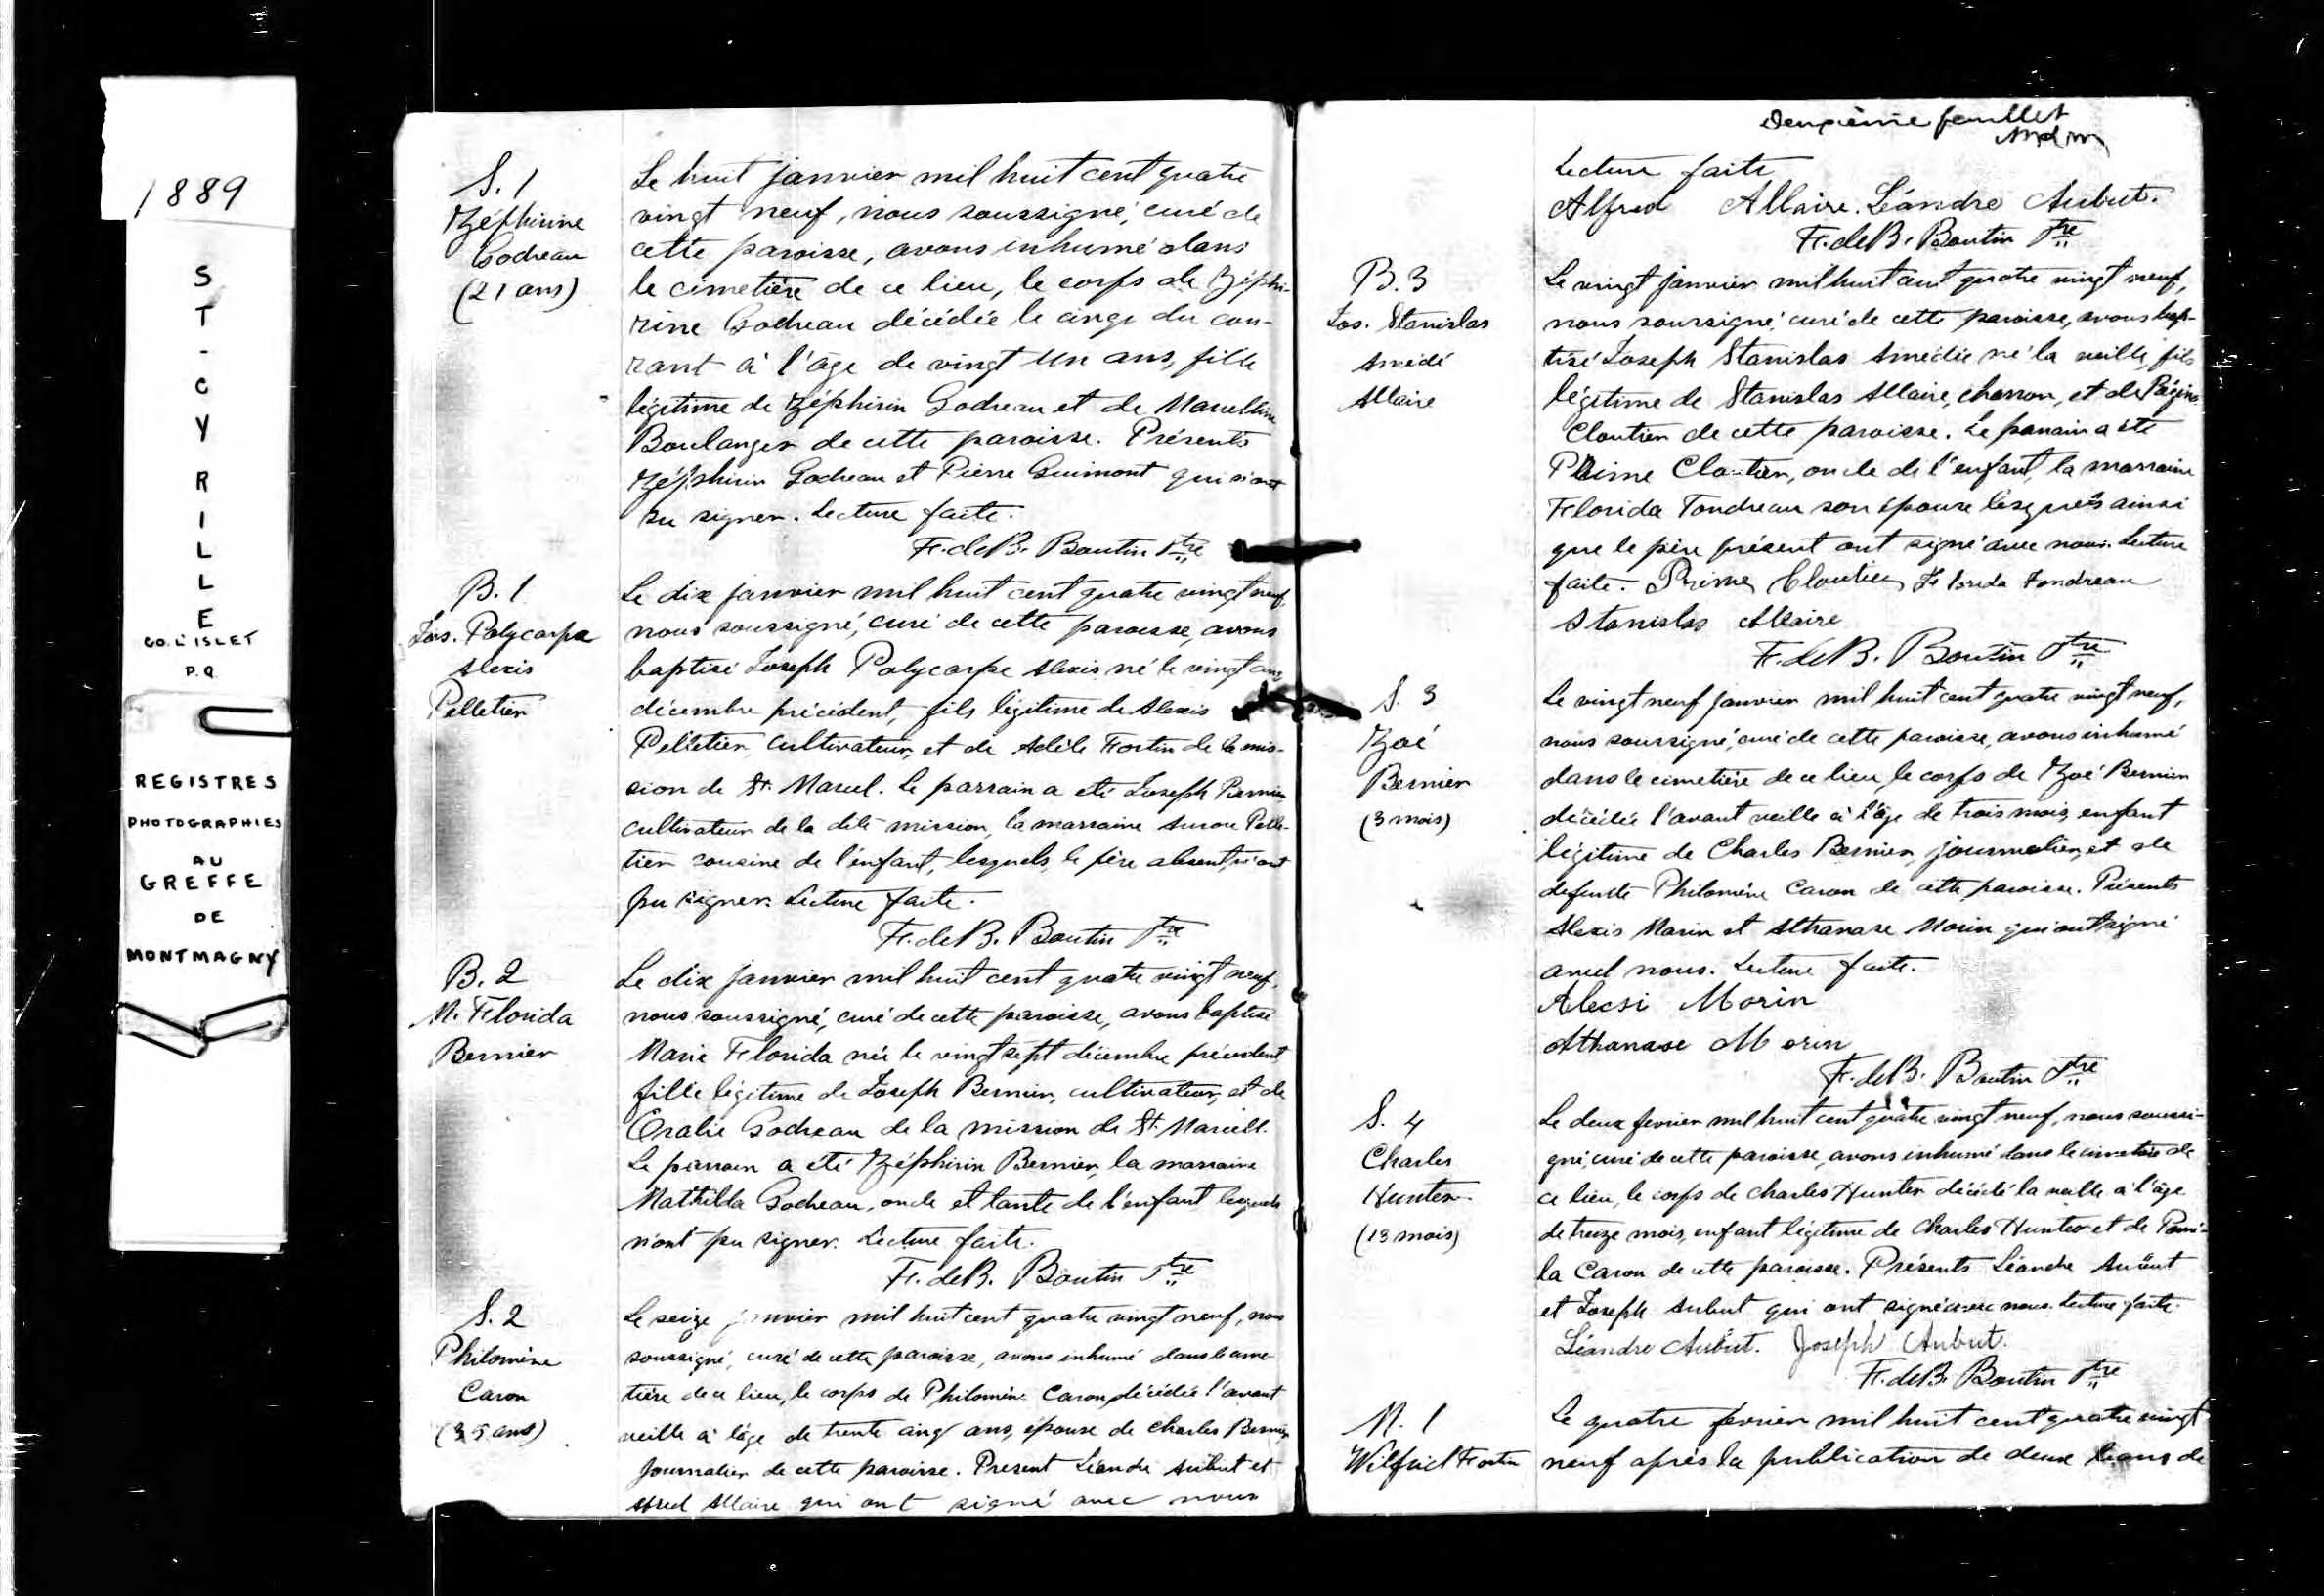 1889
ST-CYRILLE
CO. L'ISLET
P.Q.
REGISTRES
PHOTOGRAPHIES
AU
GREFFE
DE
MONTMAGNY
S. 1
Zéphirine
Godreau
(21 ans)
Le huit janvier mil huit cent quatre
vingt neuf, nous soussigné, curé de
cette paroisse, avons inhumé dans
le cimetière de ce lieu, le corps de Zéphi-
rine Godreau décédée le cinq du cou-
rant à l'âge de vingt un ans, fille
légitime de Zéphirin Godreau et de Marcelline
Boulanger de cette paroisse. Présents
Zéphirin Godreau et Pierre Guimont qui n'ont
su signer. Lecture faite.
F. de B. Boutin Ptre
B. 1
Jos. Polycarpe
Alexis
Pelletier
Le dix janvier mil huit cent quatre vingt neuf,
nous soussigné, curé de cette paroisse, avons
baptisé Joseph Polycarpe Alexis né le vingt
décembre précédent, fils légitime de Alexis
Pelletier, cultivateur, et de Adèle Fortin de la mis-
sion de St. Marcel. Le parrain a été Joseph Bernier,
cultivateur de la dite mission, la marraine Aurore Pelle-
tier cousine de l'enfant, lesquels, le père absent, n'ont
pu signer. Lecture faite.
F. de B. Boutin Ptre
B. 2
M. Florida
Bernier
Le dix janvier mil huit cent quatre vingt neuf,
nous soussigné, curé de cette paroisse, avons baptisé
Marie Florida née le vingt sept décembre précédent,
fille légitime de Joseph Bernier, cultivateur, et de
Oralie Godreau de la mission de St. Marcell.
Le parrain a été Zéphirin Bernier, la marraine
Mathilda Godreau, oncle et tante de l'enfant lesquels
n'ont pu signer. Lecture faite.
F. de B. Boutin Ptre
S. 2
Philomène
Caron
(35 ans)
Le seize janvier mil huit cent quatre vingt neuf, nous
soussigné, curé de cette paroisse, avons inhumé dans le cime-
tière de ce lieu, le corps de Philomène Caron décédée l'avant
veille à l'âge de trente cinq ans, épouse de Charles Bernier
journalier de cette paroisse. Present Léandre Aubut et
Alfred Allaire qui ont signé avec nous
Deuxième feuillet
Lecture faite
Alfred Allaire. Léandre Aubut.
F. de B. Boutin Ptre
B. 3
Jos. Stanislas
Amédé
Allaire
Le vingt janvier mil huit cent quatre vingt neuf,
nous soussigné, curé de cette paroisse, avons bap-
tisé Joseph Stanislas Amédée né la veille, fils
légitime de Stanislas Allaire, charron, et de Régina
Cloutier de cette paroisse. Le parrain a été
Prime Cloutier, oncle de l'enfant, la marraine
Florida Tondreau son épouse lesquels ainsi
que le père présent ont signé avec nous. Lecture
faite. Prime Cloutier Florida Tondreau
Stanislas Allaire
F. de B. Boutin Ptre
S. 3
Zoé
Bernier
(3 mois)
Le vingt neuf janvier mil huit cent quatre vingt neuf,
nous soussigné, curé de cette paroisse, avons inhumé
dans le cimetière de ce lieu, le corps de Zoé Bernier
décédée l'avant veille à l'âge de trois mois, enfant
légitime de Charles Bernier, journalier, et de
defunte Philomène Caron de cette paroisse. Présents
Alexis Morin et Athanase Morin qui ont signé
avec nous. Lecture faite.
Alecsi Morin
Athanase Morin
F. de B. Boutin Ptre
S. 4
Charles
Hunter
(13 mois)
Le deux fevrier mil huit cent quatre vingt neuf, nous soussi-
gné, curé de cette paroisse, avons inhumé dans le cimetière de
ce lieu, le corps de Charles Hunter décédé la veille à l'âge
de treize mois, enfant légitime de Charles Hunter et de
la Caron de cette paroisse. Présents Léandre Aubut
et Joseph Aubut qui ont signé avec nous. Lecture faite.
Léandre Aubut. Joseph Aubut.
F. de B. Boutin Ptre
M. 1
Wilfrid Fortin
Le quatre fevrier mil huit cent quatre vingt
neuf après la publication de deux bans de